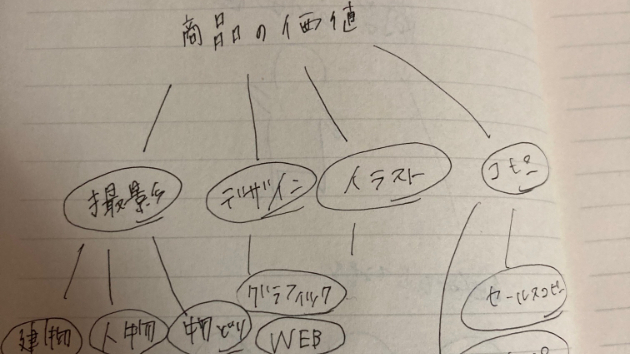 商品の価値
撮影
デザイン
イラスト
コピー
グラフィック
セールスコピー
建物
人物
物どり
WEB